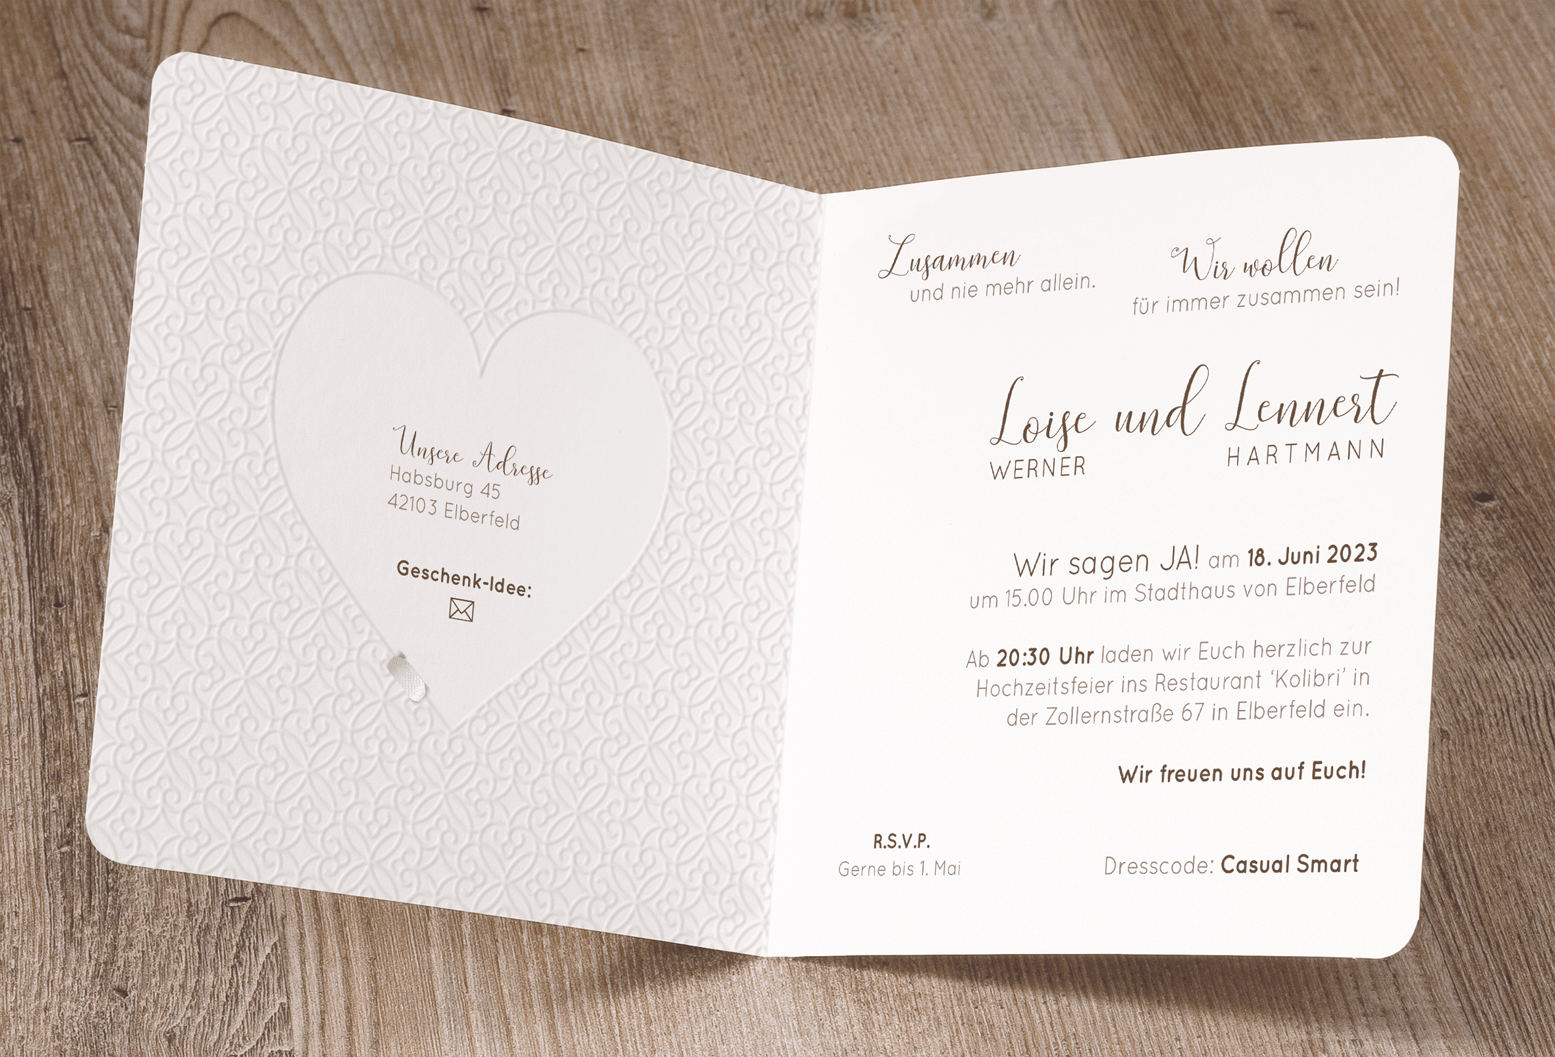 Unsere Adresse
Habsburg 45
42103 Elberfeld
Geschenk-Idee:
Zusammen
und nie mehr allein.
Wir wollen
für immer zusammen sein!
Loise und Lennert
WERNER HARTMANN
Wir sagen JA! am 18. Juni 2023
um 15.00 Uhr im Stadthaus von Elberfeld
Ab 20:30 Uhr laden wir Euch herzlich zur
Hochzeitsfeier ins Restaurant 'Kolibri' in
der Zollernstraße 67 in Elberfeld ein.
Wir freuen uns auf Euch!
R.S.V.P.
Gerne bis 1. Mai
Dresscode: Casual Smart